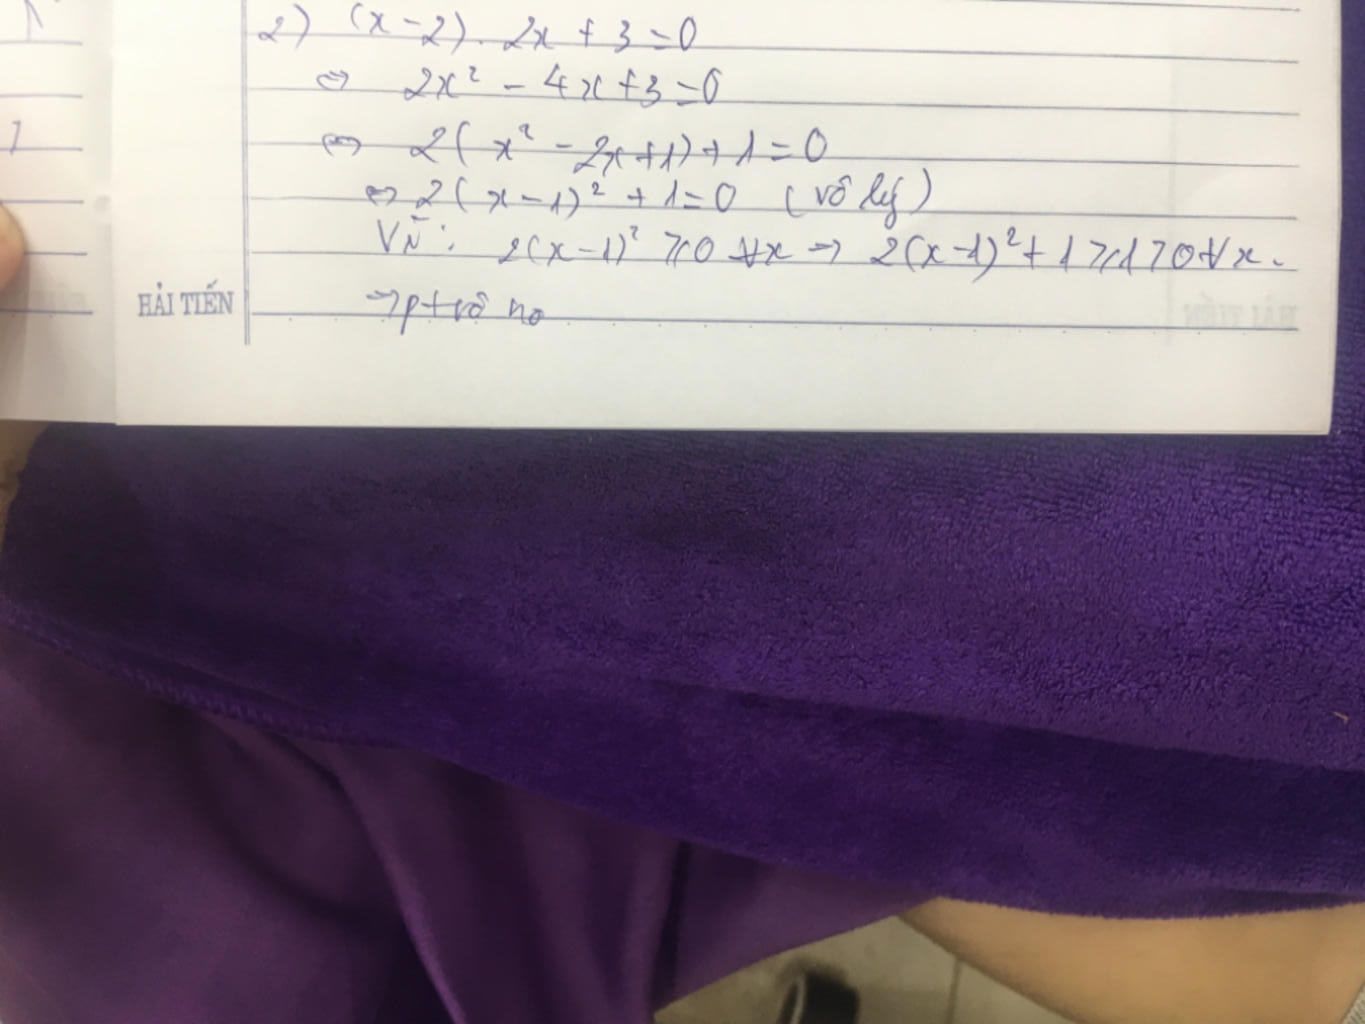 2) (x-2). 2x + 3 = 0
⇔ 2x² - 4x + 3 = 0
⇔ 2(x² - 2x + 1) + 1 = 0
⇔ 2(x-1)² + 1 = 0 (vô lý)
Vì: 2(x-1)² ≥ 0 ∀x → 2(x-1)² + 1 ≥ 1 > 0 ∀x.
HẢI TIẾN → pt vô no